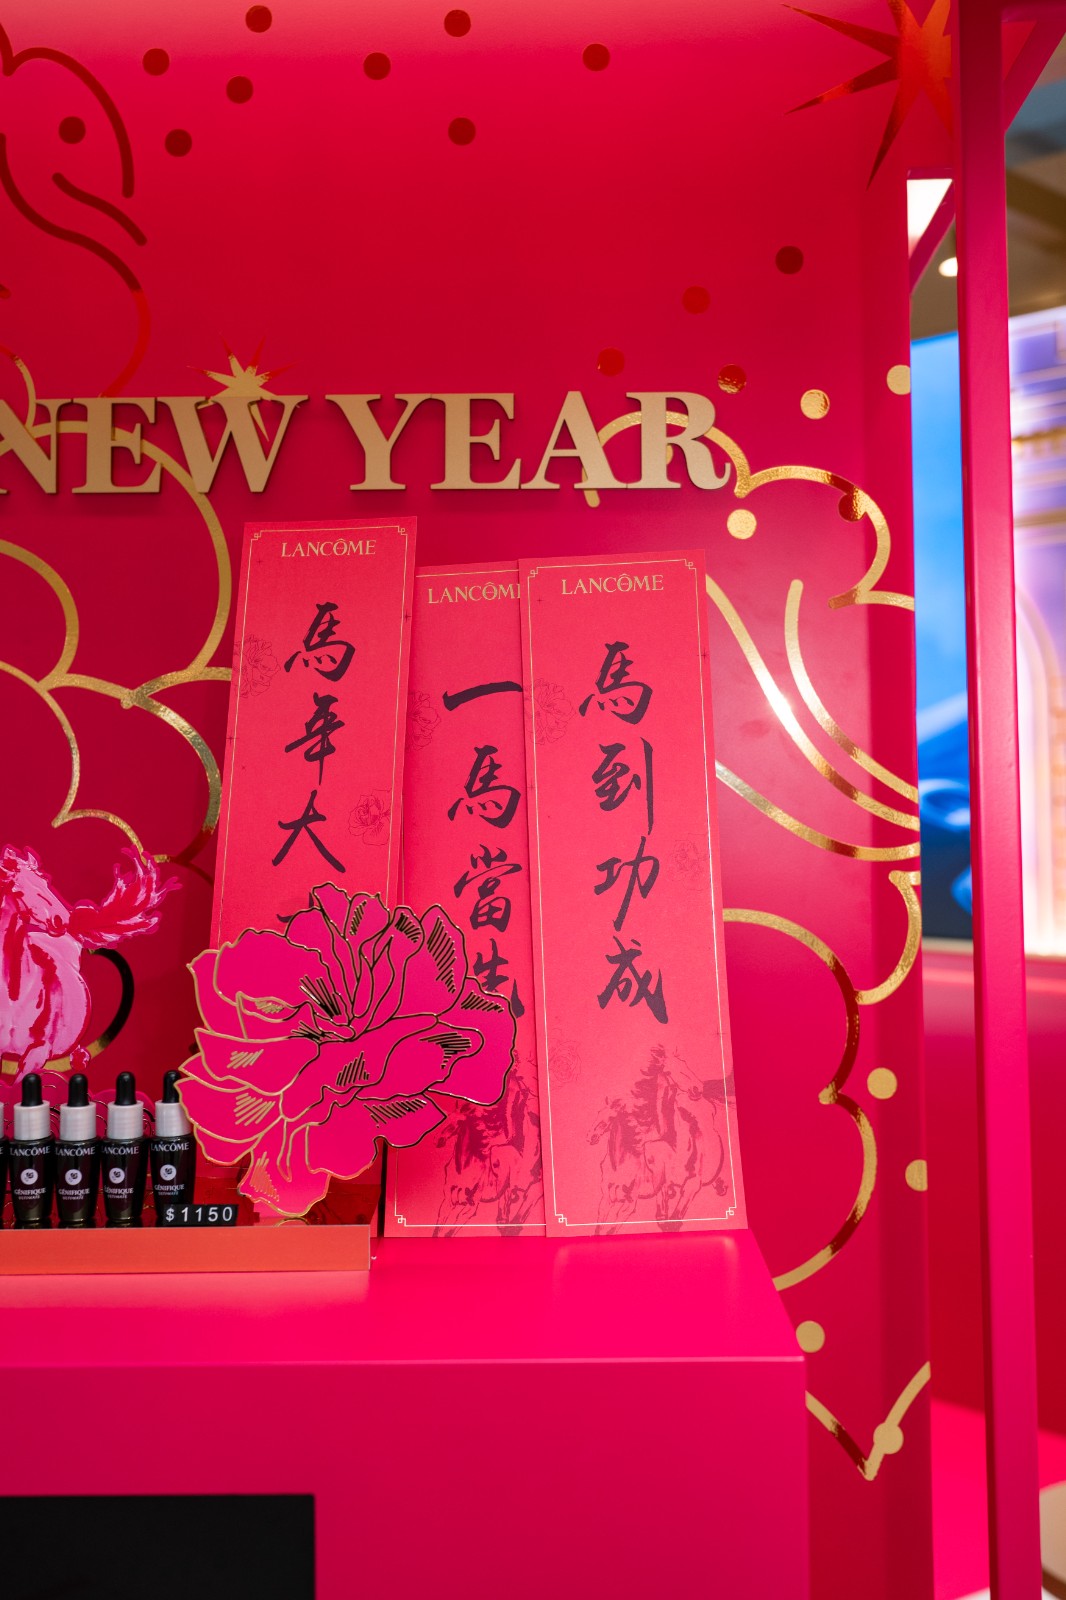 NEW YEAR
LANCÔME
馬年大
LANCÔME
一馬當先
LANCÔME
馬到功成
LANCÔME
GÉNIFIQUE
ULTIMATE
LANCÔME
GÉNIFIQUE
ULTIMATE
LANCÔME
GÉNIFIQUE
ULTIMATE
LANCÔME
GÉNIFIQUE
ULTIMATE
$1150